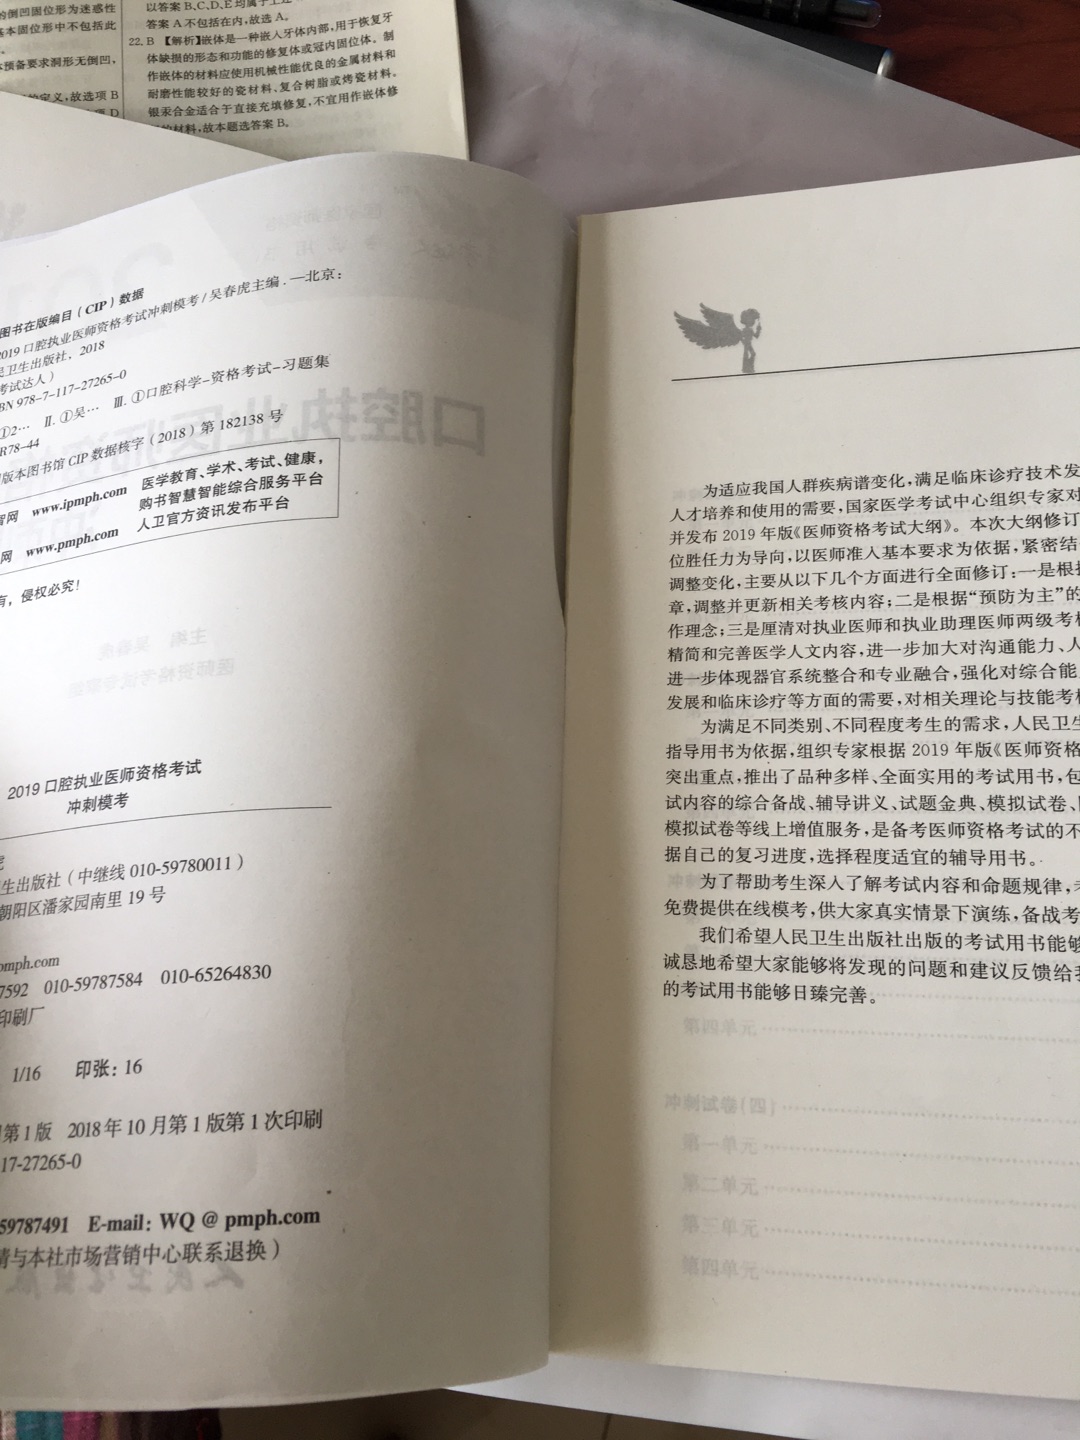 的倒凹固位形为迷惑性
基本固位形中不包括此
预备要求洞形无倒凹,
的定义,故选项 B
以答案 B、C、D、E 均属于上
答案 A 不包括在内,故选 A。
22. B 【解析】嵌体是一种嵌入牙体内部,用于恢复牙
体缺损的形态和功能的修复体或冠内固位体。制
作嵌体的材料应使用机械性能优良的金属材料和
耐磨性能较好的瓷材料、复合树脂或烤瓷材料。
银汞合金适合于直接充填修复,不宜用作嵌体修
的材料,故本题选答案 B。
图书在版编目(CIP)数据
2019 口腔执业医师资格考试冲刺模考 / 吴春虎主编. —北京:
民卫生出版社,2018
考试达人)
BN 978-7-117-27265-0
①2… Ⅱ. ①吴… Ⅲ. ①口腔科学-资格考试-习题集
R78-44
版本图书馆 CIP 数据核字(2018)第 182138 号
智网 www.ipmph.com 医学教育、学术、考试、健康,
购书智慧智能综合服务平台
网 www.pmph.com 人卫官方资讯发布平台
有,侵权必究!
2019 口腔执业医师资格考试
冲刺模考
虎
卫生出版社(中继线 010-59780011)
朝阳区潘家园南里 19 号
pmph.com
7592 010-59787584 010-65264830
印刷厂
1/16 印张:16
第 1 版 2018 年 10 月第 1 版第 1 次印刷
17-27265-0
59787491 E-mail: WQ @ pmph.com
请与本社市场营销中心联系退换)
为适应我国人群疾病谱变化,满足临床诊疗技术发
人才培养和使用的需要,国家医学考试中心组织专家对
并发布 2019 年版《医师资格考试大纲》。本次大纲修订
位胜任力为导向,以医师准入基本要求为依据,紧密结
调整变化,主要从以下几个方面进行全面修订:一是根据
章,调整并更新相关考核内容;二是根据“预防为主”的
作理念;三是厘清对执业医师和执业助理医师两级考核
精简和完善医学人文内容,进一步加大对沟通能力、人
进一步体现器官系统整合和专业融合,强化对综合能
发展和临床诊疗等方面的需要,对相关理论与技能考核
为满足不同类别、不同程度考生的需求,人民卫生
指导用书为依据,组织专家根据 2019 年版《医师资格
突出重点,推出了品种多样、全面实用的考试用书,包
试内容的综合备战、辅导讲义、试题金典、模拟试卷、
模拟试卷等线上增值服务,是备考医师资格考试的不
据自己的复习进度,选择程度适宜的辅导用书。
为了帮助考生深入了解考试内容和命题规律,考
免费提供在线模考,供大家真实情景下演练,备战考
我们希望人民卫生出版社出版的考试用书能够
诚恳地希望大家能够将发现的问题和建议反馈给我
的考试用书能够日臻完善。
第四单元
冲刺试卷(四)
第一单元
第二单元
第三单元
第四单元